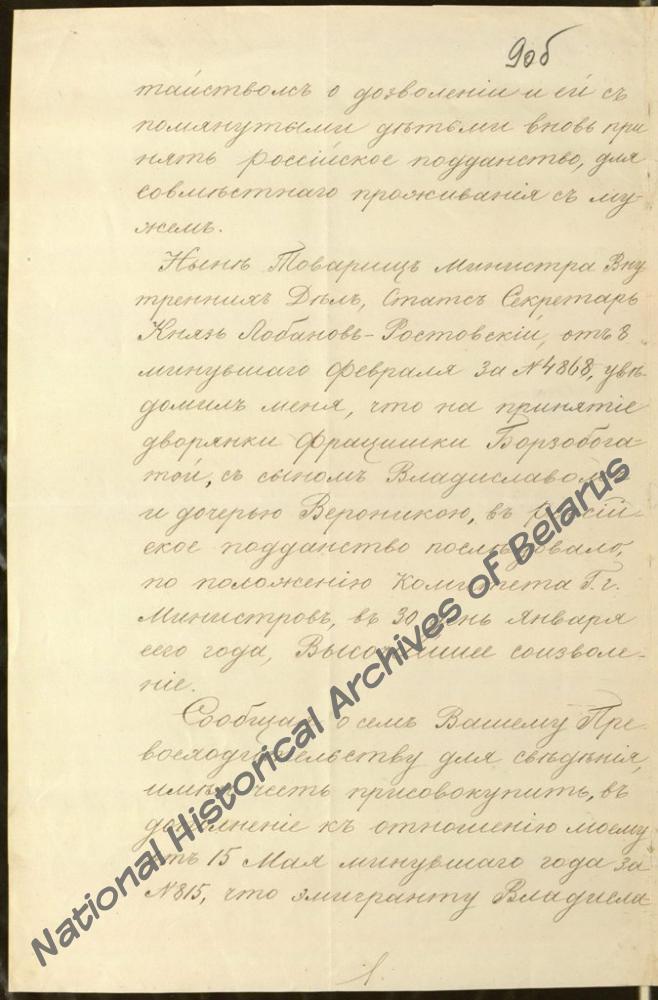 90б
тайствомъ о дозволеніи и ей съ
помянутыми дѣтьми вновь при
нять россійское подданство, для
совмѣстнаго проживанія съ му-
жемъ.
Нынѣ Товарищъ Министра Вну
треннихъ Дѣлъ, Статсъ Секретарь
Князь Лобановъ-Ростовскій, отъ 8
минувшаго февраля за №4868, увѣ
домилъ меня, что на принятіе
дворянки Францишки Борзобога-
той, съ сыномъ Владиславомъ
и дочерью Вероникою, въ россій-
ское подданство послѣдовало,
по положенію Комитета Г.г.
Министровъ, въ 30 день Января
сего года, Высочайшее соизволе-
ніе.
Сообщая о семъ Вашему Пре-
восходительству для свѣдѣнія,
имѣю честь присовокупить, въ
дополненіе къ отношенію моему
отъ 15 Мая минувшаго года за
№815, что эмигранту Владисла-
National Historical Archives of Belarus